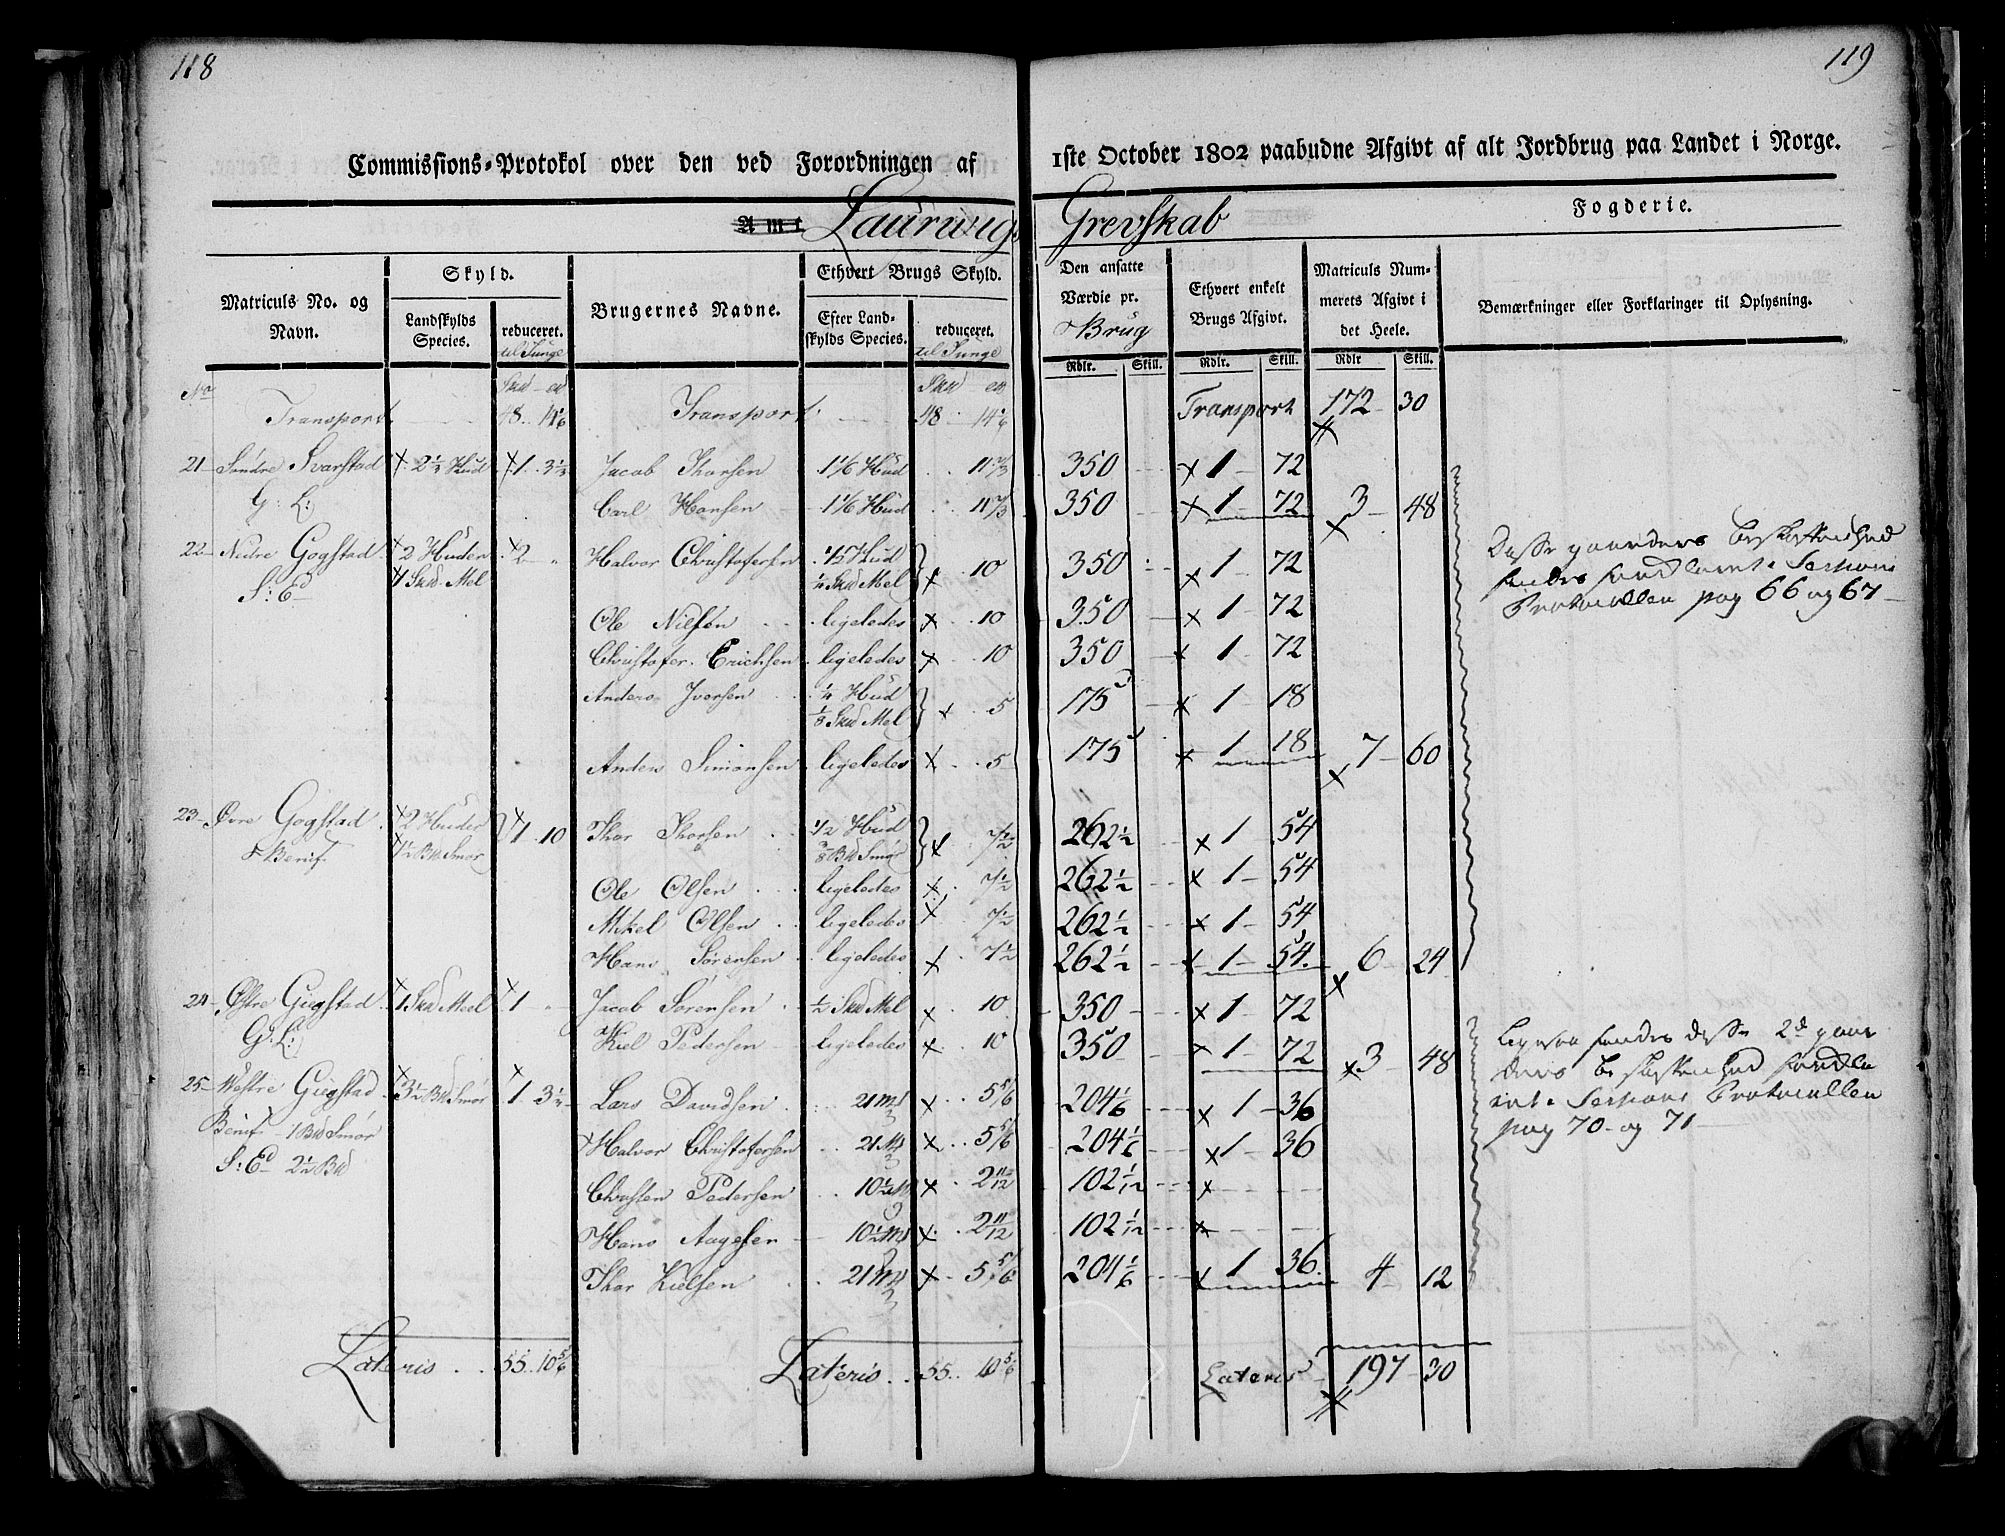 118
119
Commissions-Protokol over den ved Forordningen af 1ste October 1802 paabudne Afgivt af alt Jordbrug paa Landet i Norge.
Amt Laurwigs Grevskab Fogderie.
Matriculs No. og Navn.
Skyld.
Landskylds Species.
reduceret. til Tunge
Brugernes Navne.
Ethvert Brugs Skyld.
Efter Landskylds Species.
reduceret. til Tunge
Den ansatte Værdie pr. Brug
Ethvert enkelt Brugs Afgivt.
Matriculs Nummerets Afgivt i det Heele.
Bemærkninger eller Forklaringer til Oplysning.
Rdlr. Skill. Rdlr. Skill. Rdlr Skill.
No
Transport 48 14 1/6 Transport 48 14 1/6 Transport 172 30
21 Søndre Svarstad 2 1/3 Hud 1 3 1/3 Jacob Thorsen 1 1/6 Hud 11 2/3 350 1 72
G: L: Carl Hansen 1 1/6 Hud 11 2/3 350 1 72 3 48
22 Nedre Gogstad 2 Huder 2 Halvor Christofersen 1/2 Hud 10 350 1 72
S: Ed 1 Skd Mel 1/4 Skd Mel
Ole Nilsen ligeledes 10 350 1 72
Christofer Erichsen ligeledes 10 350 1 72
Anders Iversen 1/4 Hud 5 175 1 18
1/8 Skd Mel
Anders Simonsen ligeledes 5 175 1 18 7 60
23 Øvre Gogstad 2 Huder 1 10 Thor Thorsen 1/2 Hud 7 1/2 262 1/2 1 54
Benif. 1 1/2 Bd Smør 3/8 Bd Smør
Ole Olsen ligeledes 7 1/2 262 1/2 1 54
Mikel Olsen ligeledes 7 1/2 262 1/2 1 54
Hans Sørensen ligeledes 7 1/2 262 1/2 1 54 6 24
24 Østre Giegstad 1 Skd Meel 1 Jacob Sørensen 1/2 Skd Mel 10 350 1 72
G: L: Kiel Pedersen ligeledes 10 350 1 72 3 48
25 Westre Giegstad 3 1/2 Bd Smør 1 3 1/2 Lars Davidsen 21 Mk 5 5/6 204 1/6 1 36
Benif 1 Bd Smør Halvor Christofersen 21 Mk 5 5/6 204 1/6 1 36
S: Ed 2 1/2 Bd Christen Pedersen 10 1/2 Mk 2 11/12 102 1/12
Hans Aagesen 10 1/2 Mk 2 11/12 102 1/12
Thor Kielsen 21 Mk 5 5/6 204 1/6 1 36 4 12
Lateris 55 10 5/6 Lateris 55 10 5/6 Lateris 197 30
Disse gaarders beskaffenhed
findes
Protocollen pag 66 og 67
Ligesaa findes disse 2de gaar
ders beskaffenhed
Sessions Protocollen
pag 70 og 71